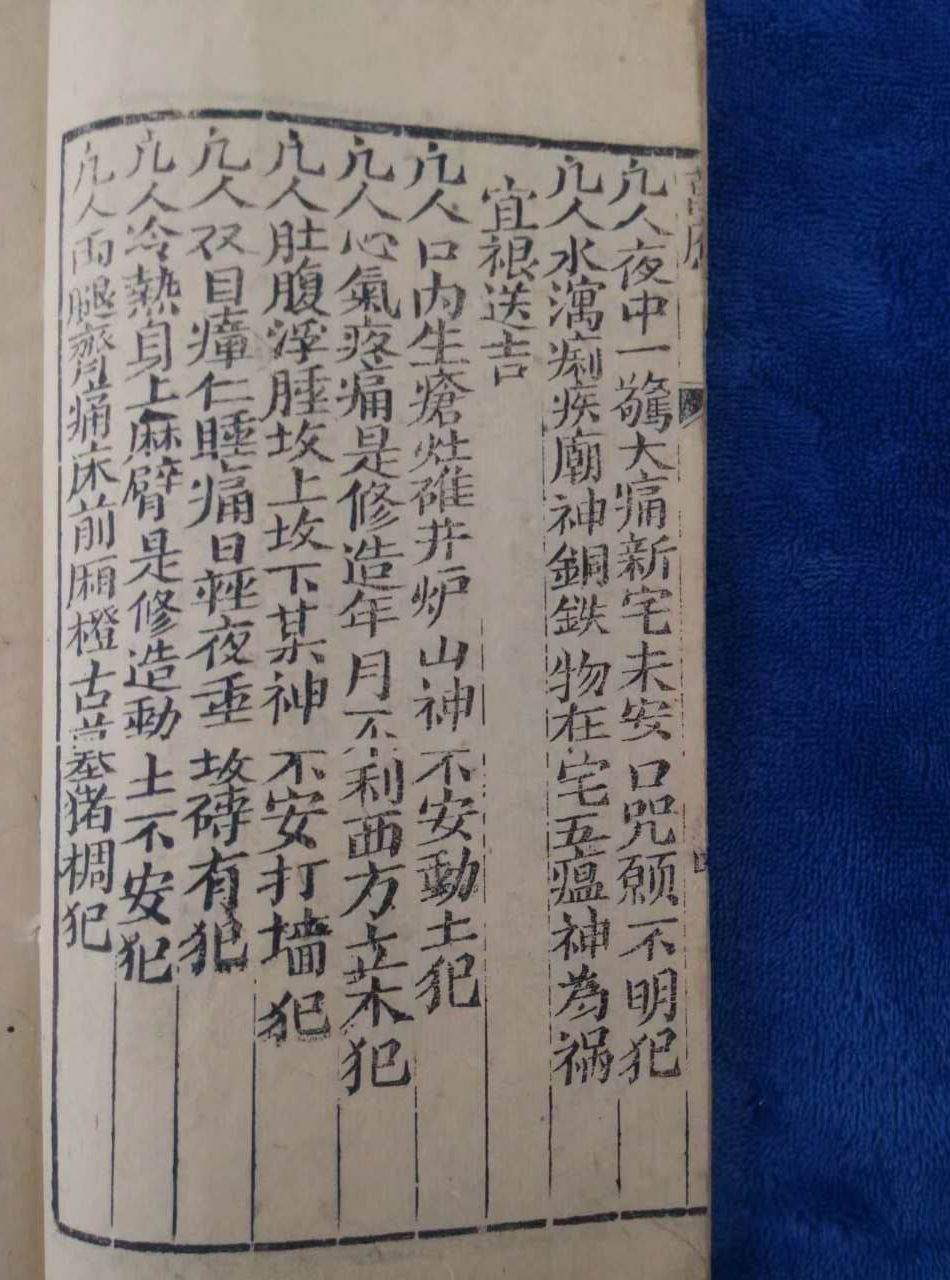 凢人夜中一驚大痛新宅未安口咒願不明犯
凢人水瀉痢疾廟神銅鉄物在宅五瘟神為禍
宜禳送吉
凢人口内生瘡灶碓井炉山神不安動土犯
凢人心氣疼痛是修造年月不利西方立英犯
凢人肚腹浮腄坟上坟下某神不安打墙犯
凢人双目瘴仁睡痛日輕夜重坟磚有犯
凢人冷熱身上麻臂是修造動土不安犯
凢人両腿痛床前厢橙古墓猪椆犯